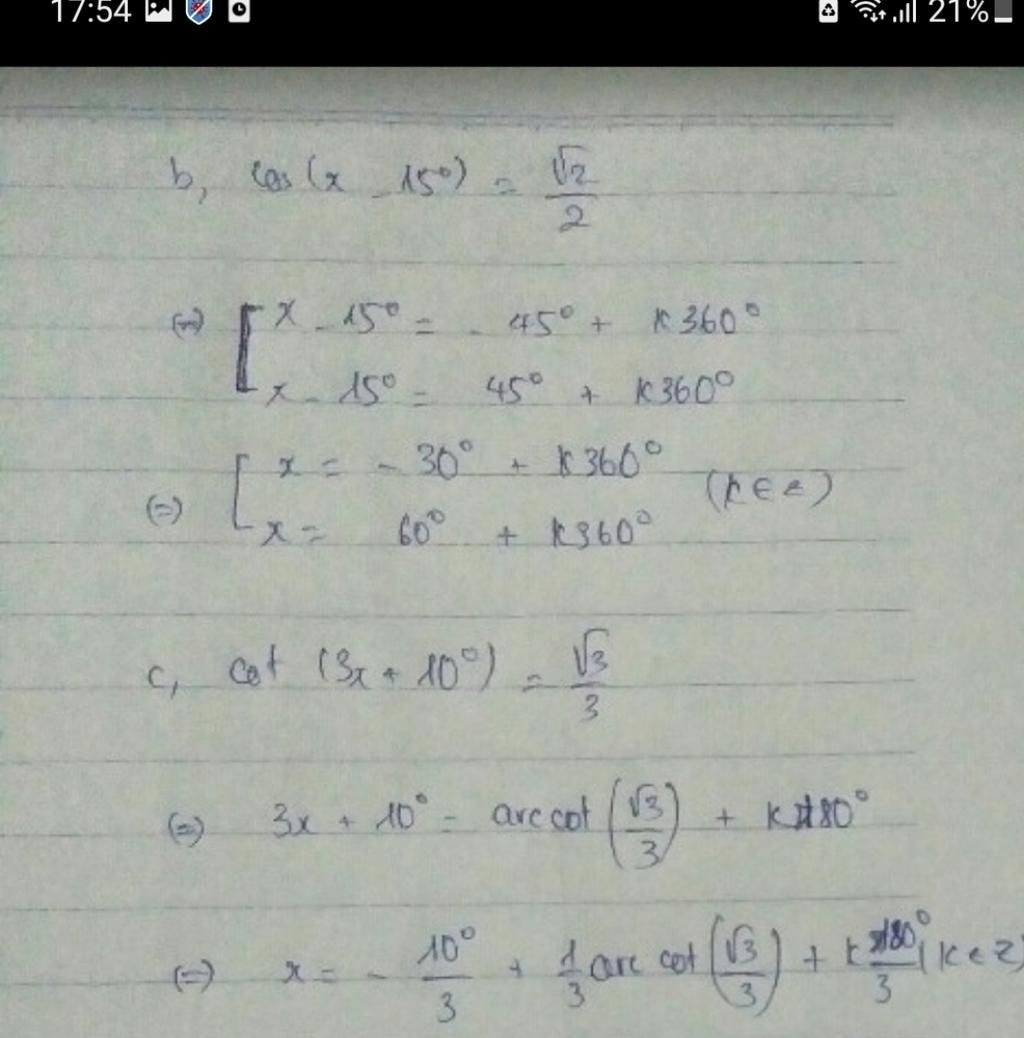 17:54 21%
b, cos(x - 15°) = √2/2
(=) [ x - 15° = - 45° + k360°
x - 15° = 45° + k360°
(=) [ x = - 30° + k360° (k ∈ z)
x = 60° + k360°
c, cot (3x + 10°) = √3/3
(=) 3x + 10° = arc cot (√3/3) + k180°
(=) x = - 10°/3 + 1/3 arc cot (√3/3) + k 180°/3 (k ∈ z)